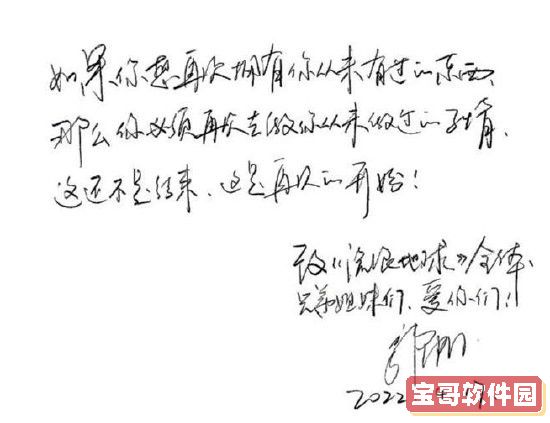 如果你想再次拥有你从未有过的东西、
那么你必须再次去做你从未做过的事情、
这还不是结束、这是再次的开始！
致《流浪地球》全体、
兄弟姐妹们、爱你们！
2022
宝哥软件园